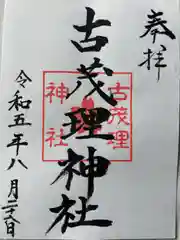 奉拝
古茂理神社
古茂理
神社
令和五年八月二十八日